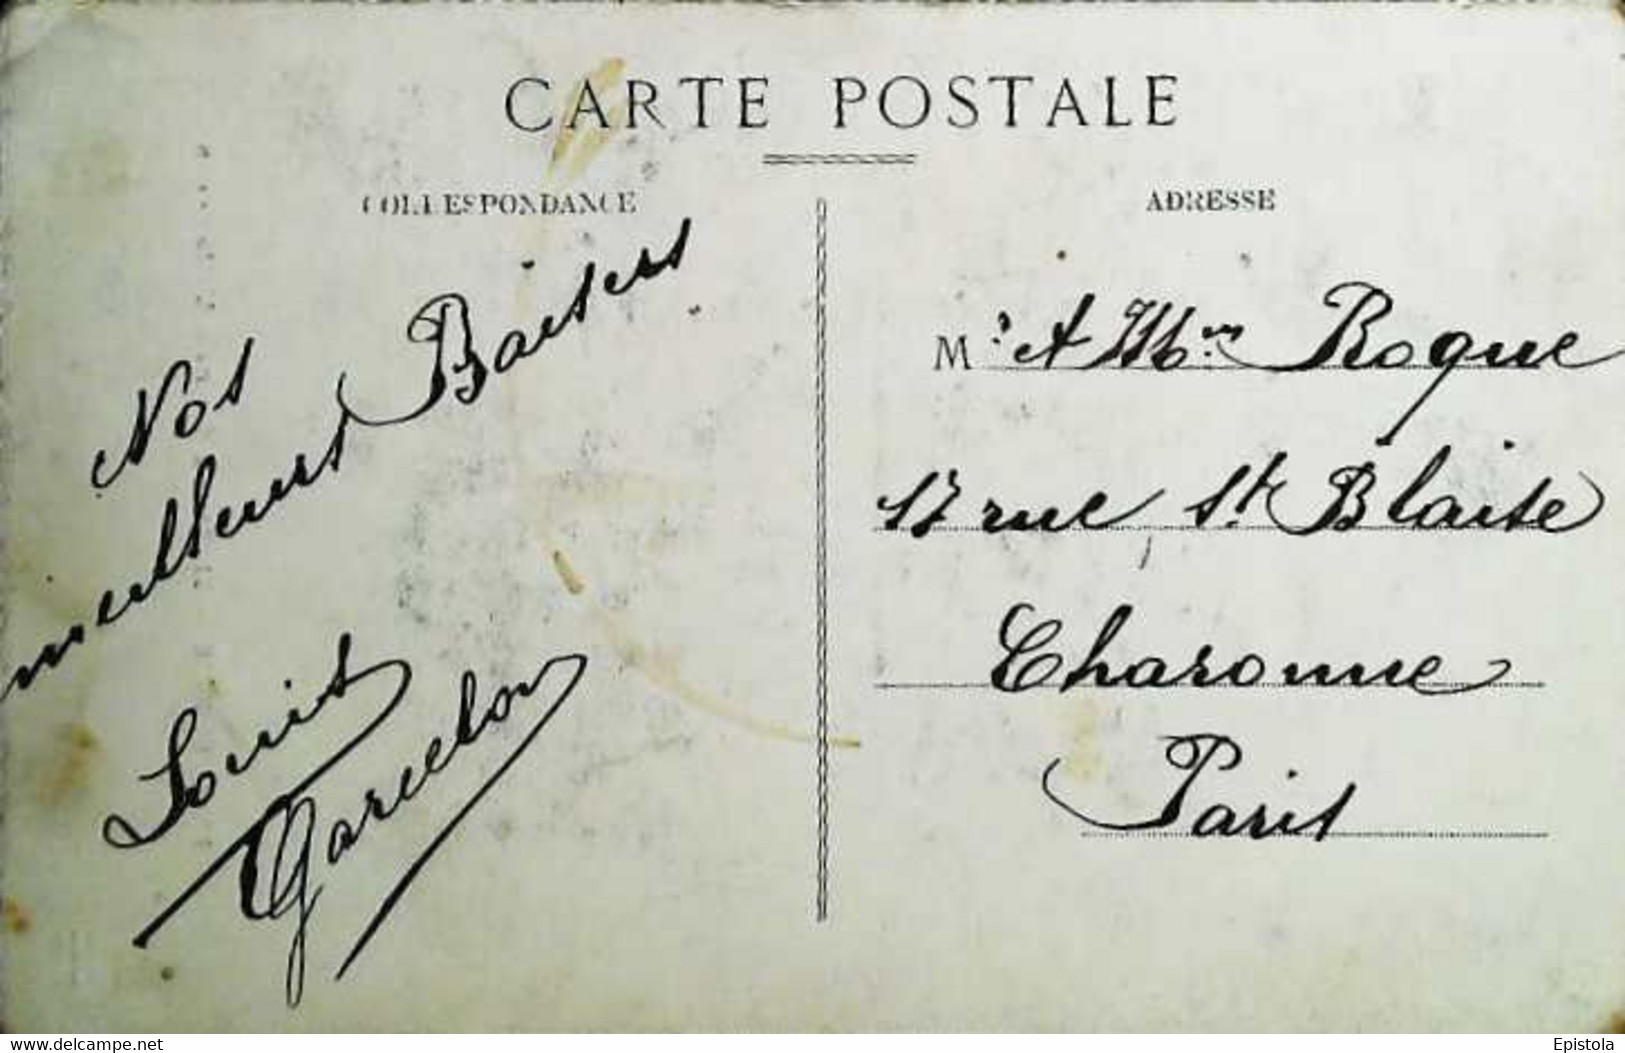 CARTE POSTALE
CORRESPONDANCE
Nos
meilleurs Baisers
Louis
Garcelon
ADRESSE
Mr et Mme Roque
17 rue St Blaise
Charonne
Paris
www.delcampe.net
Epistola